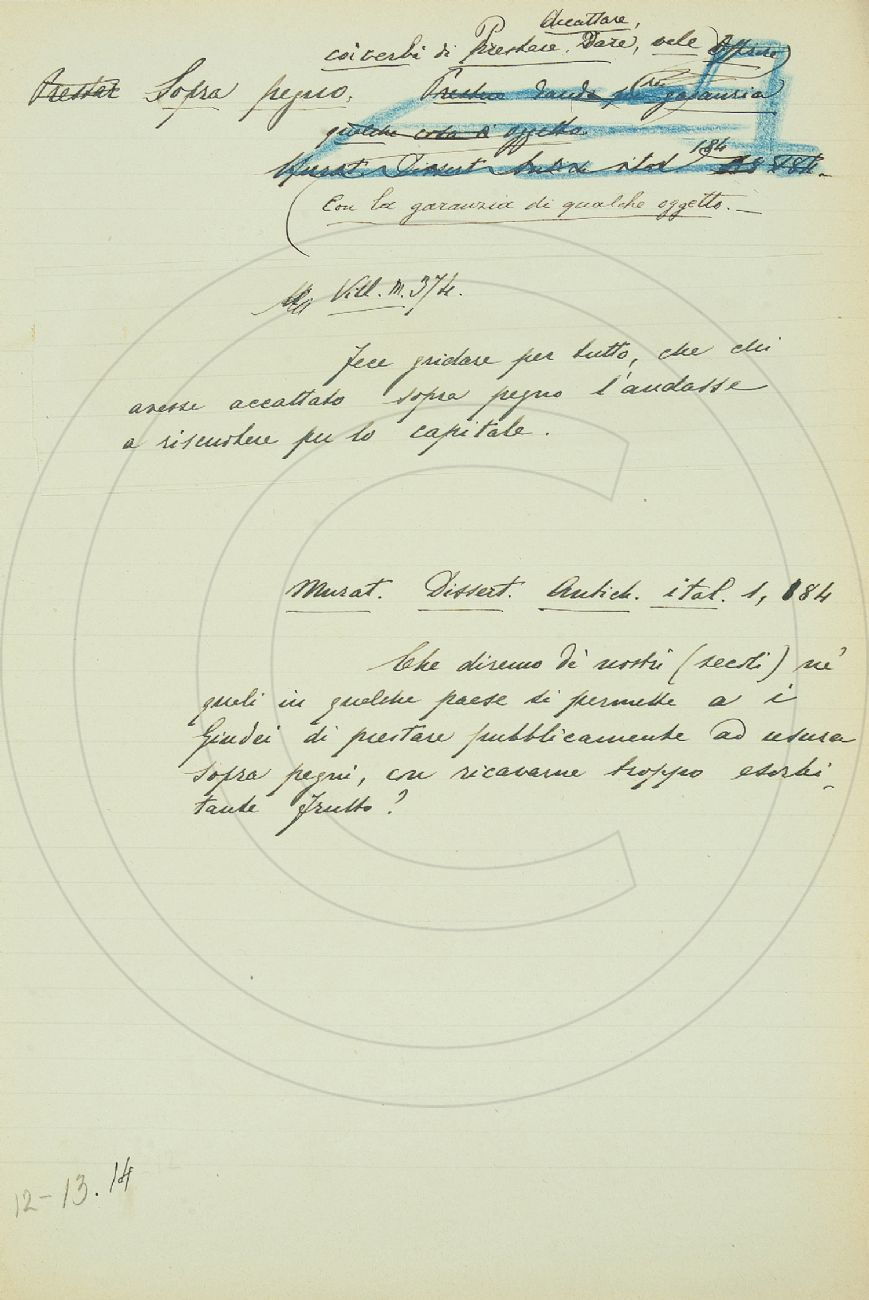 Accattare,
coi verbi di Prestare, Dare, vele
Prestar Sopra pegno. Prestar dando per garanzia
qualche cosa o oggetto
Murat. Dissert. Antich. ital 184
Con la garanzia di qualche oggetto. —
Vill. M. 374.
Fece gridare per tutto, che chi
avesse accattato sopra pegno l'andasse
a riscuotere per lo capitale.
Murat. Dissert. Antich. ital. 1, 184
Che diremo de' nostri (secoli) ne'
quali in qualche paese si permette a i
Giudei di prestare pubblicamente ad usura
sopra pegni, con ricavarne troppo esorbi-
tante frutto?
12-13.14